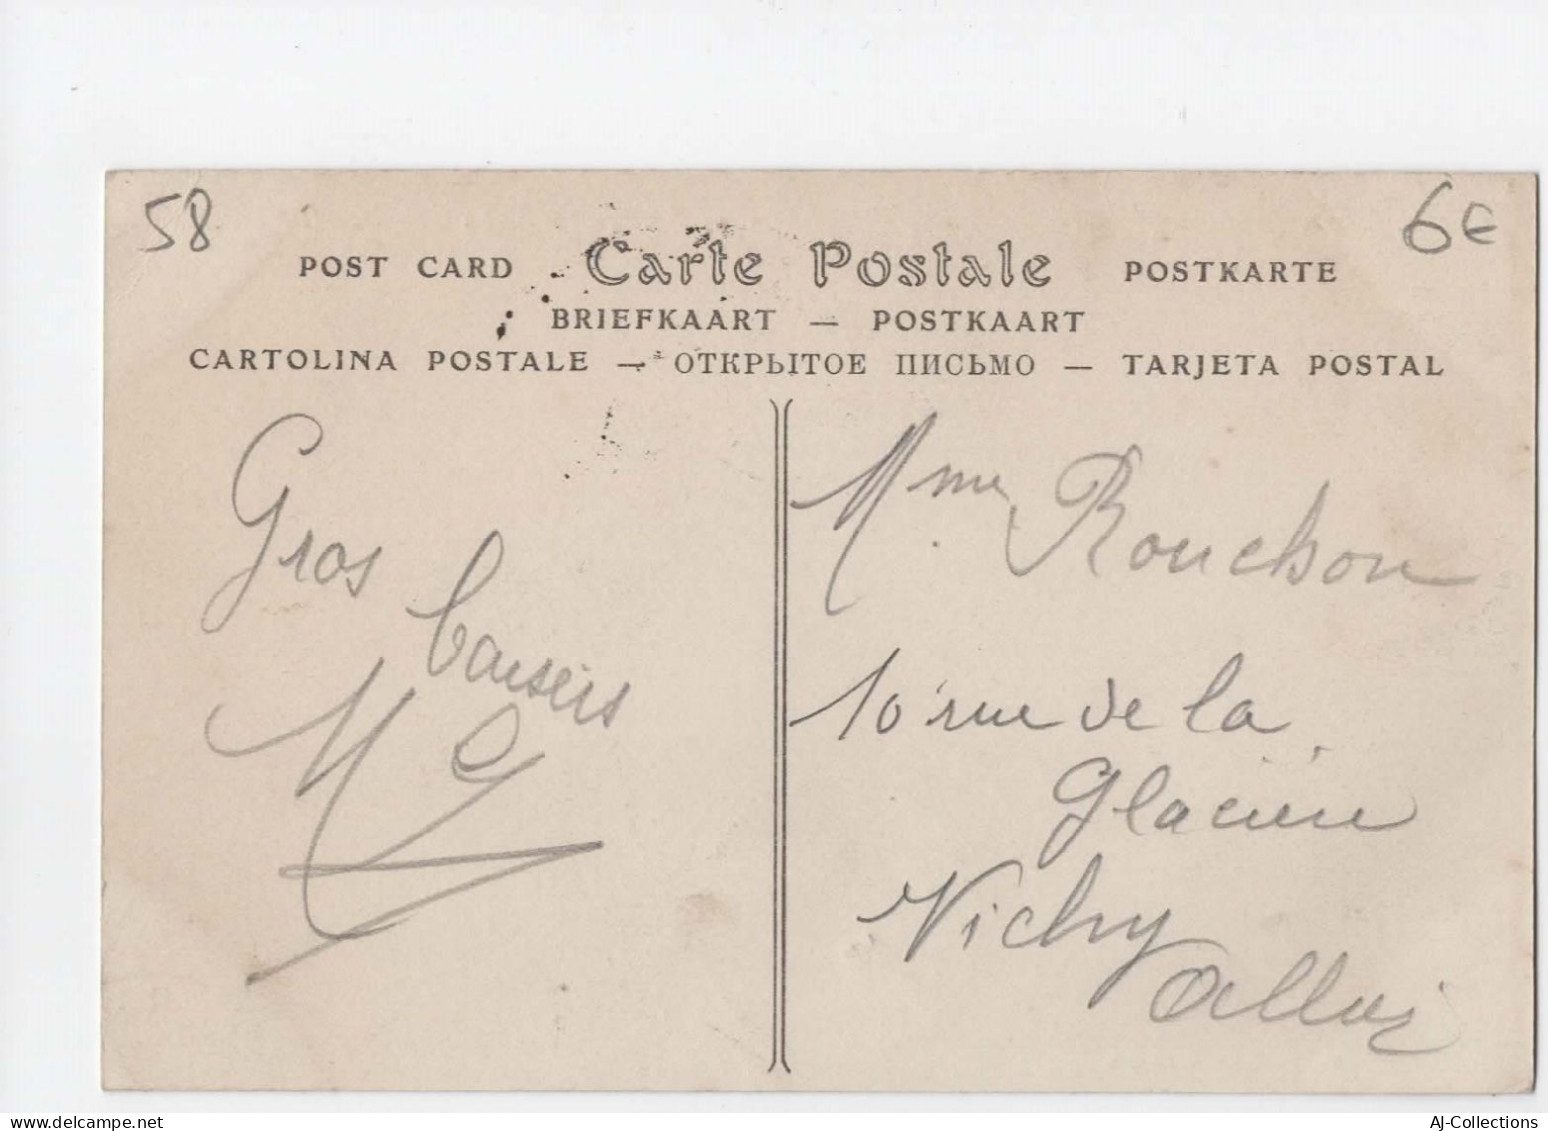 58
6€
POST CARD Carte Postale POSTKARTE
BRIEFKAART — POSTKAART
CARTOLINA POSTALE — ОТКРЫТОЕ ПИСЬМО — TARJETA POSTAL
Gros
baisers
Mme Rouchon
10 rue de la
Glacière
Vichy
Allier
AJ-Collections